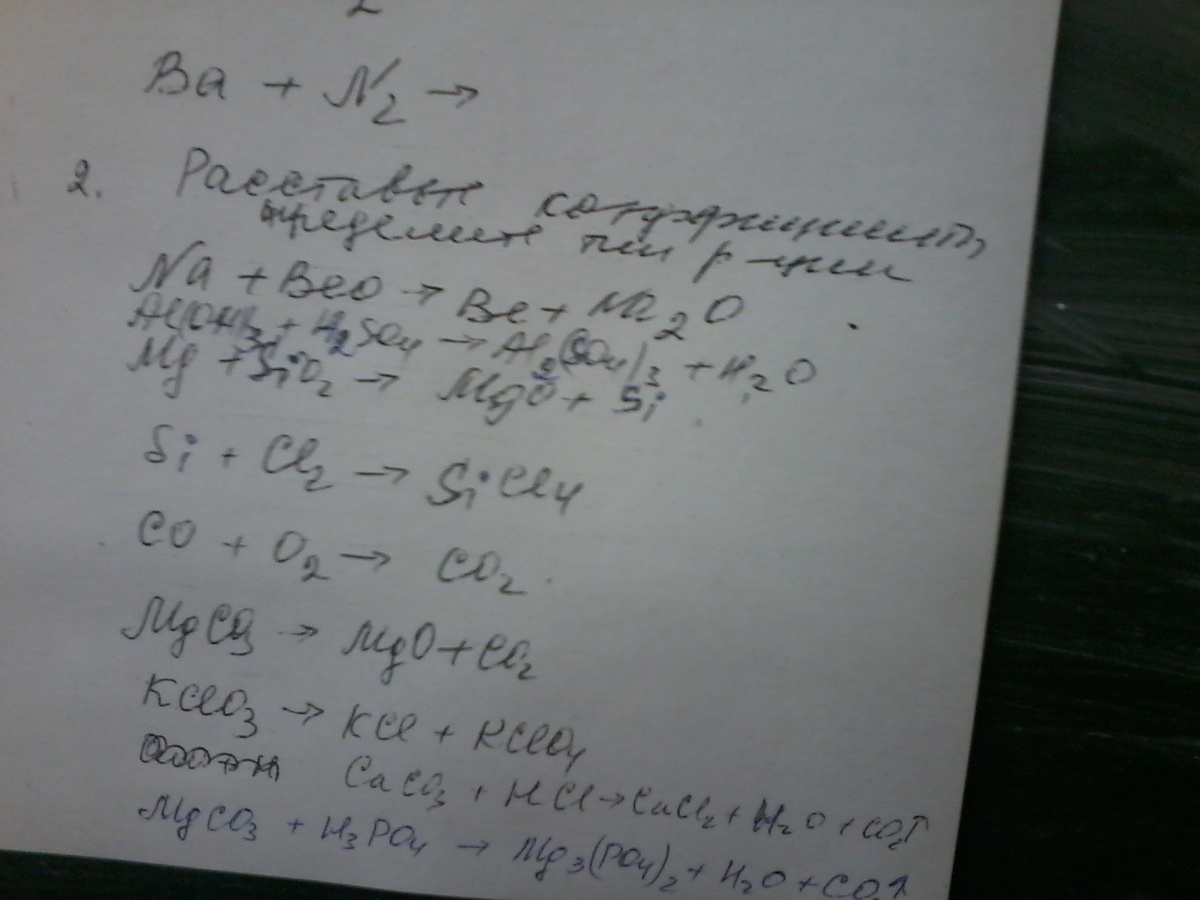 2
Ba + N₂ →
2. Расставьте коэффициенты,
определите тип р-ции
Na + BeO → Be + Na₂O
Al(OH)₃ + H₂SO₄ → Al₂(SO₄)₃ + H₂O
Mg + SiO₂ → MgO + Si
Si + Cl₂ → SiCl₄
CO + O₂ → CO₂
MgCO₃ → MgO + CO₂
KClO₃ → KCl + KClO₄
CaCO₃ + HCl → CaCl₂ + H₂O + CO₂↑
MgCO₃ + H₃PO₄ → Mg₃(PO₄)₂ + H₂O + CO₂↑